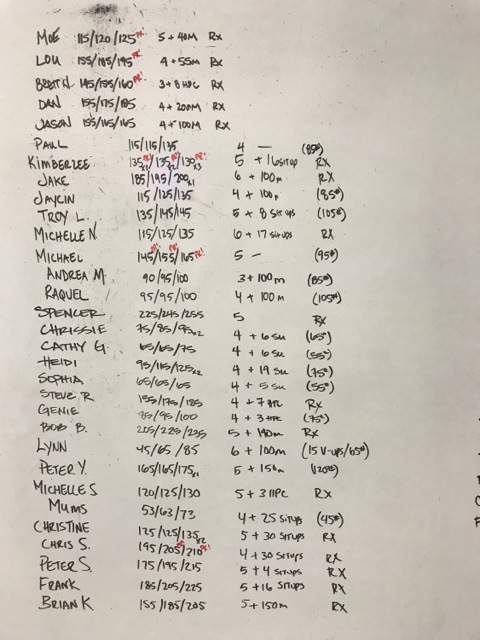 MOE 115/120/125 PR 5 + 40M RX
LOU 155/185/195 PR! 4 + 55M RX
BRETT N. 145/155/160 PR! 3 + 8 HPC RX
DAN 155/175/185 4 + 200M RX
JASON 155/165/165 4 + 100M RX
PAUL 115/115/135 4 — (85#)
KIMBERLEE 135x1/135x2/130x3 PR! 5 + 16 SITUP RX
JAKE 185/195/200x1 6 + 100m RX
JAYCIN 115/125/135 4 + 100m (85#)
TROY L. 135/145/145 5 + 8 SIT UPS (105#)
MICHELLE N. 115/125/135 6 + 17 SIT UPS RX
MICHAEL 145 PR!/155 PR!/165 PR! 5 - (95#)
ANDREA M. 90/95/100 3 + 100m (85#)
RAQUEL 95/95/100 4 + 100m (105#)
SPENCER 225/245/255 5 RX
CHRISSIE 75/85/95x2 4 + 6 SU (65#)
CATHY G. 65/65/75 4 + 6 SU (55#)
HEIDI 95/115/125x2 4 + 19 SU (75#)
SOPHIA 65/65/65 4 + 5 SU (55#)
STEVE R 155/175/185 4 + 7 HPC RX
GENIE 85/95/100 4 + 3 HPC (75#)
BOB B. 205/225/235 5 + 190m RX
LYNN 45/65/85 6 + 100m (15 V-UPS/65#)
PETER Y. 165/165/175x1 5 + 150m (120#)
MICHELLE S 120/125/130 5 + 3 HPC RX
MUMS 53/63/73 4 + 25 SITUPS (45#)
CHRISTINE 125/125/135x2 5 + 30 SITUPS RX
CHRIS S. 195/205/210 PR! 4 + 30 SITUPS RX
PETER S. 175/195/215 5 + 4 SITUPS RX
FRANK 185/205/225 5 + 16 SITUPS RX
BRIAN K 155/185/205 5 + 150m RX